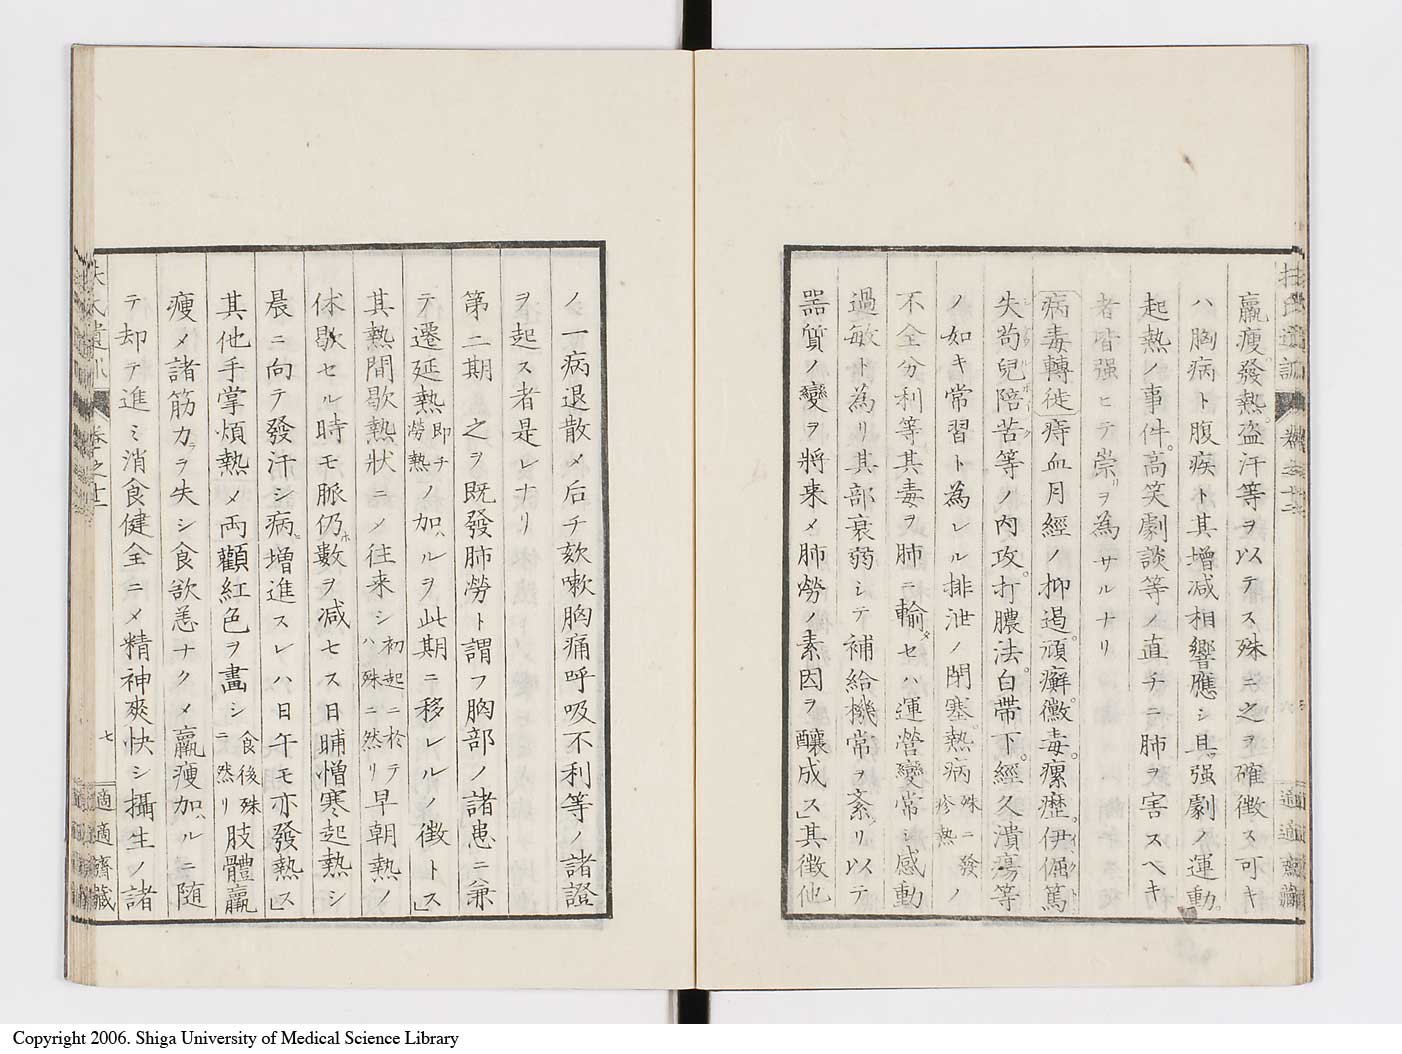 扶氏遺訓
卷之十二
六
適適齋藏
羸瘦發熱。盗汗等ヲ以テス殊ニ之ヲ確徴ス可キ
ハ胸病ト腹疾ト其增減相響應シ且強劇ノ運動。
起熱ノ事件。高笑劇談等ノ直チニ肺ヲ害スヘキ
者皆强ヒテ崇リヲ為サルナリ
病毒轉徙痔血月經ノ抑遏。頑癬。黴毒。瘰癧。伊倔篤
失苟兒陪苦等ノ内攻。打膿法。白帶下。經久潰瘍等
ノ如キ常習ト為レル排泄ノ閉塞。熱病殊ニ發疹熱ノ
不全分利等其毒ヲ肺ニ輸タセハ運營變常シ感動
過敏ト為リ其部衰弱シテ補給機常ヲ紊リ以テ
器質ノ變ヲ將来メ肺勞ノ素因ヲ釀成ス」其徴他
ノ一病退散メ后チ欬嗽胸痛呼吸不利等ノ諸證
ヲ起ス者是レナリ
第二期　之ヲ既發肺勞ト謂フ胸部ノ諸患ニ兼
テ遷延熱即チ勞熱ノ加ハルヲ此期ニ移レルノ徴トス」
其熱間歇熱狀ニメ往来シ初起ニ於テハ殊ニ然リ早朝熱ノ
休歇セル時モ脈仍ホ數ヲ減セス日晡憎寒起熱シ
晨ニ向テ發汗シ病ヒ增進スレハ日午モ亦發熱ス」
其他手掌煩熱メ両顴紅色ヲ畫シ食後殊ニ然リ肢體羸
瘦メ諸筋カラヲ失シ食欲恙ナクメ羸瘦加ハルニ随
テ却テ進ミ消食健全ニメ精神爽快シ攝生ノ諸
扶氏遺訓
卷之十二
七
適適齋藏
Copyright 2006. Shiga University of Medical Science Library